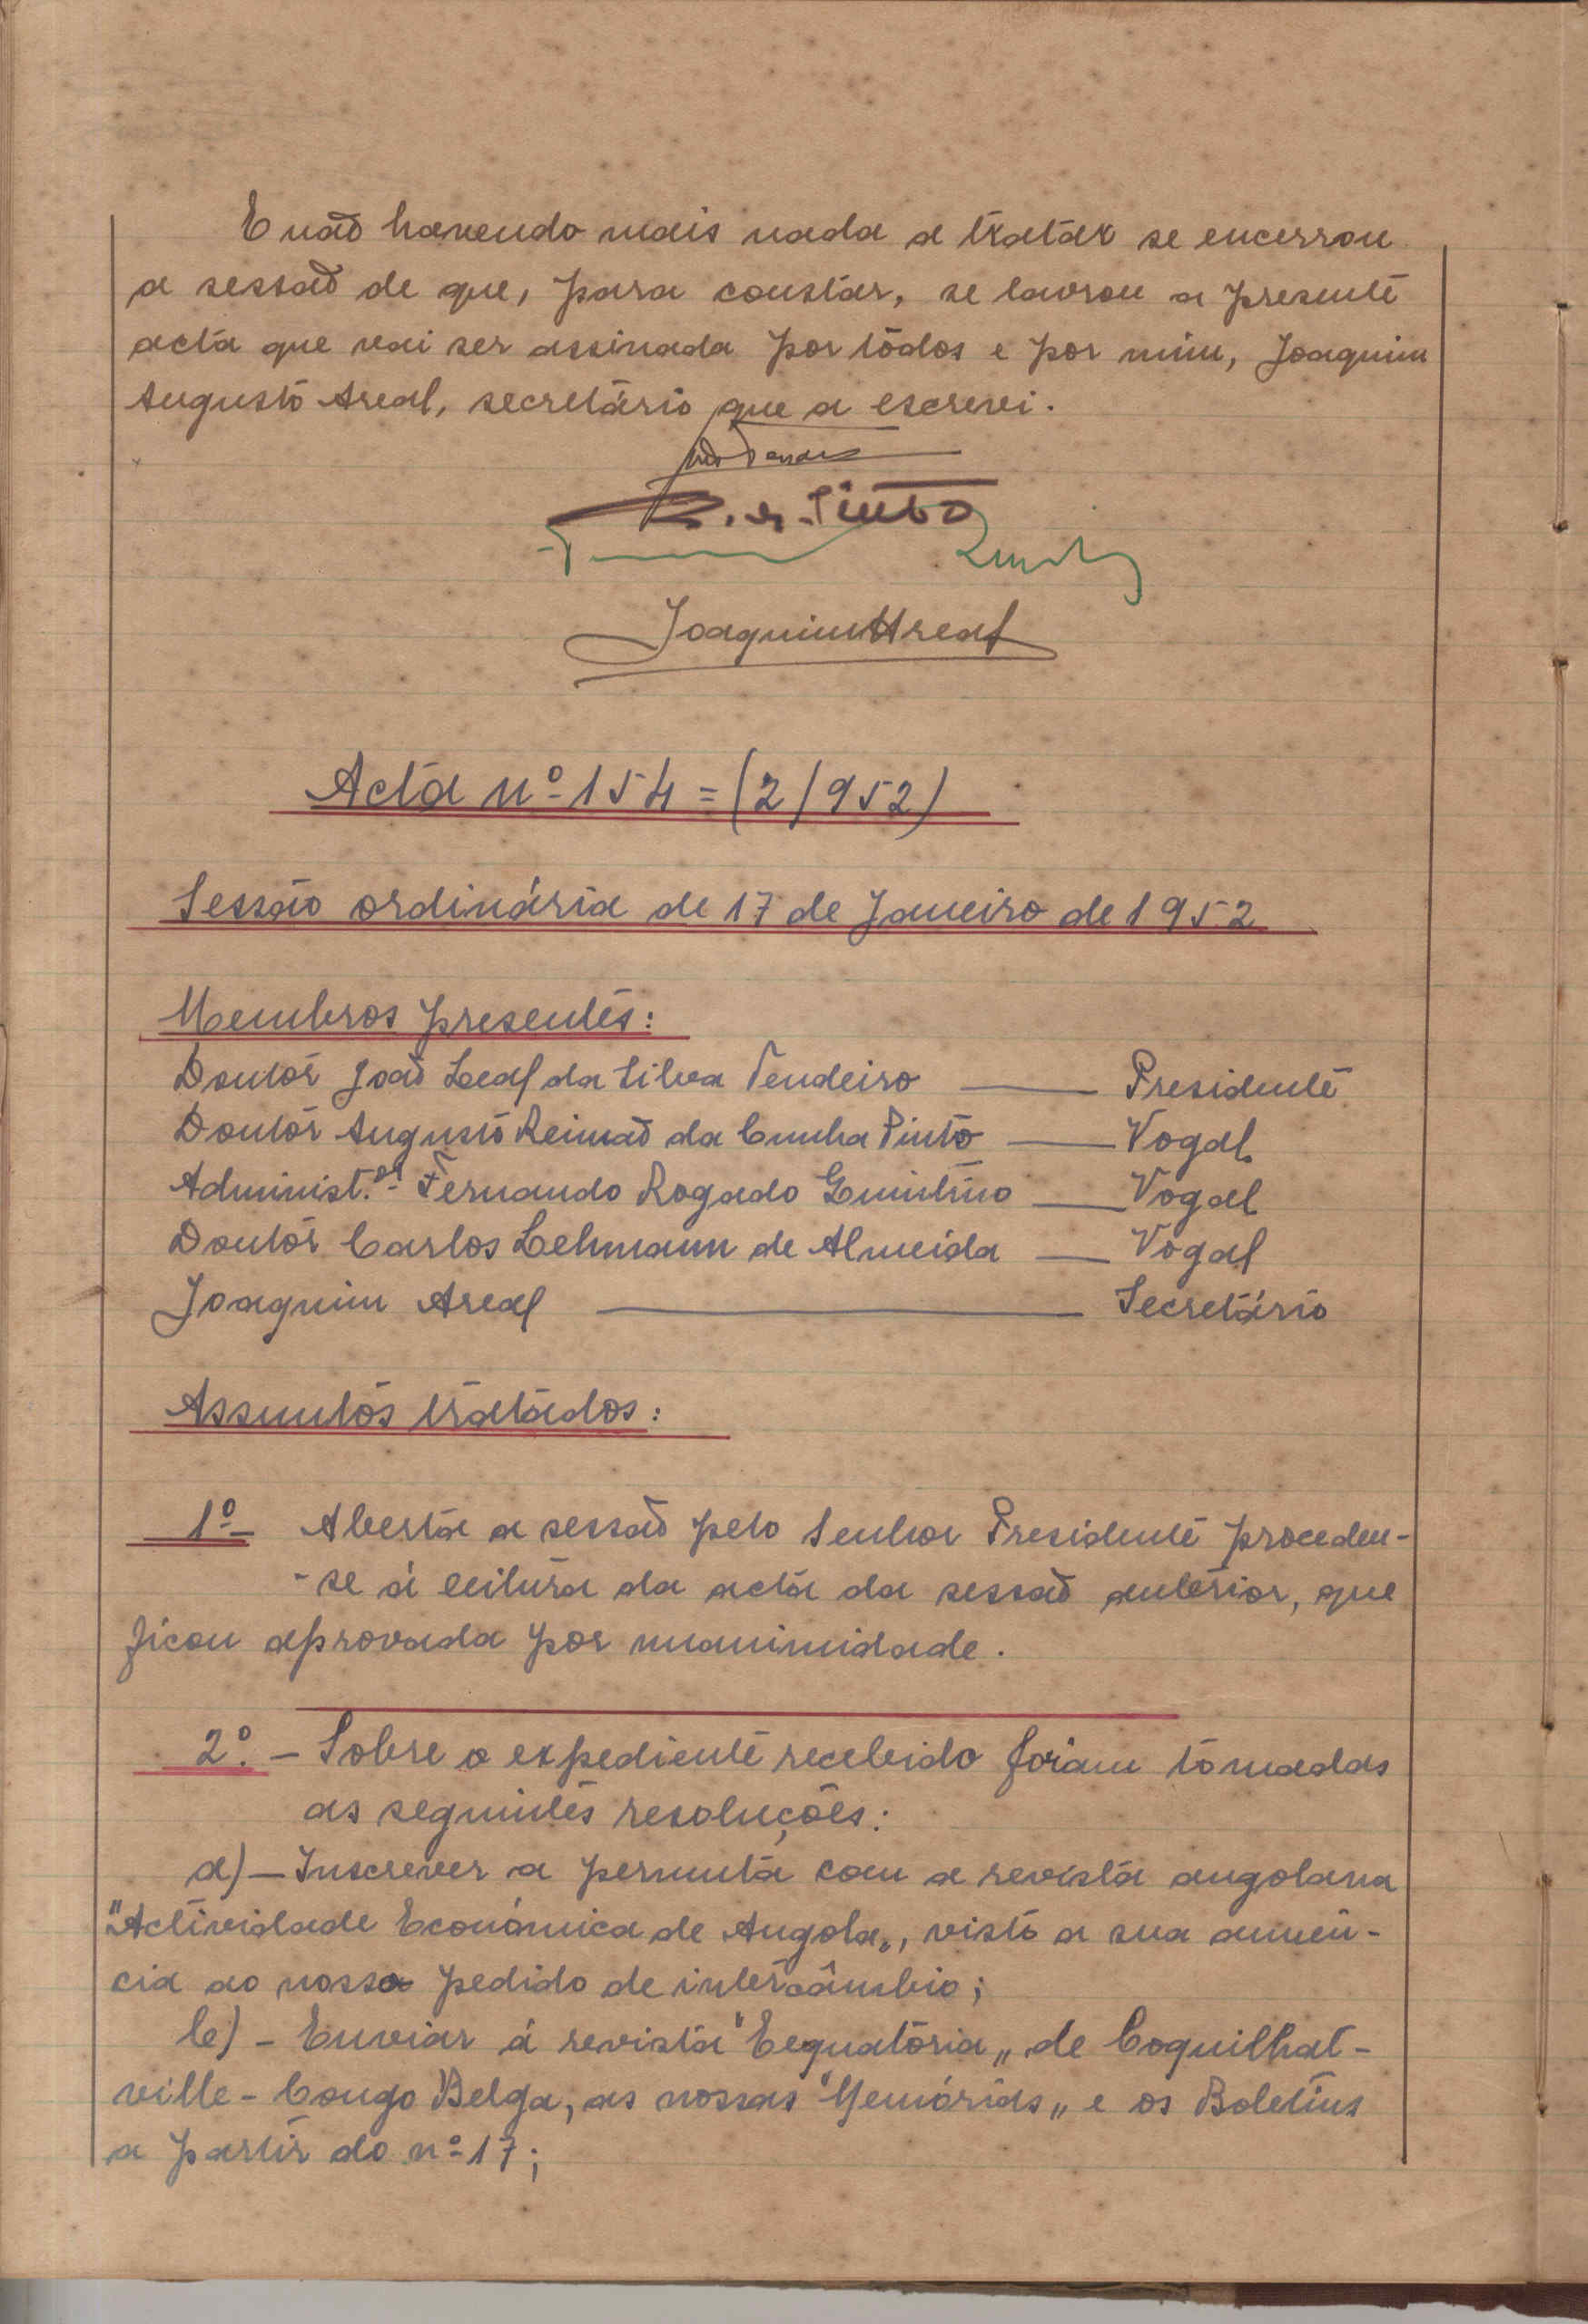 E não havendo mais nada a tratar se encerrou
a sessão de que, para constar, se lavrou a presente
acta que vai ser assinada por tôdos e por mim, Joaquim
Augusto Areal, secretário que a escrevi.
Pinto
Joaquim Areal
Acta nº 154 = (2/952)
Sessão ordinária de 17 de Janeiro de 1952
Membros presentes:
Doutor João Leal da Silva Tendeiro — Presidente
Doutor Augusto Reimão da Cunha Pinto — Vogal
Administ.or Fernando Rogado Quintino — Vogal
Doutor Carlos Lehmann de Almeida — Vogal
Joaquim Areal — Secretário
Assuntos tratados:
1º Aberta a sessão pelo Senhor Presidente procedeu-
-se á leitura da acta da sessão anterior, que
ficou aprovada por unanimidade.
2º. — Sobre o expediente recebido foram tomadas
as seguintes resoluções:
a) — Inscrever a permuta com a revista angolana
"Actividade Económica de Angola„, visto a sua anuên-
cia ao nosso pedido de intercâmbio;
b) - Enviar á revista "Eequatoria„ de Coquilhat-
ville - Congo Belga, as nossas "Memórias„ e os Boletins
a partir do nº 17;